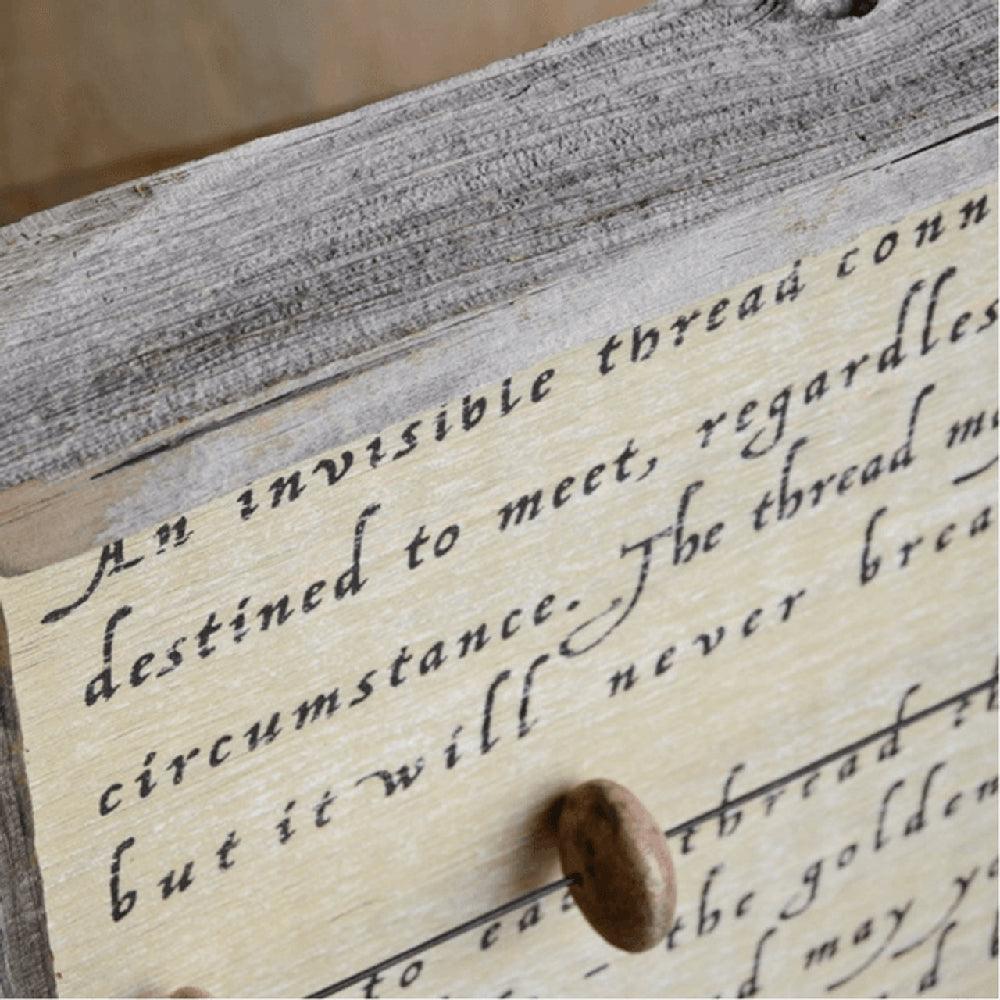 An invisible thread conn
destined to meet, regardles
circumstance. The thread ma
but it will never brea
thread th
to eac the golden
d may yo
d b